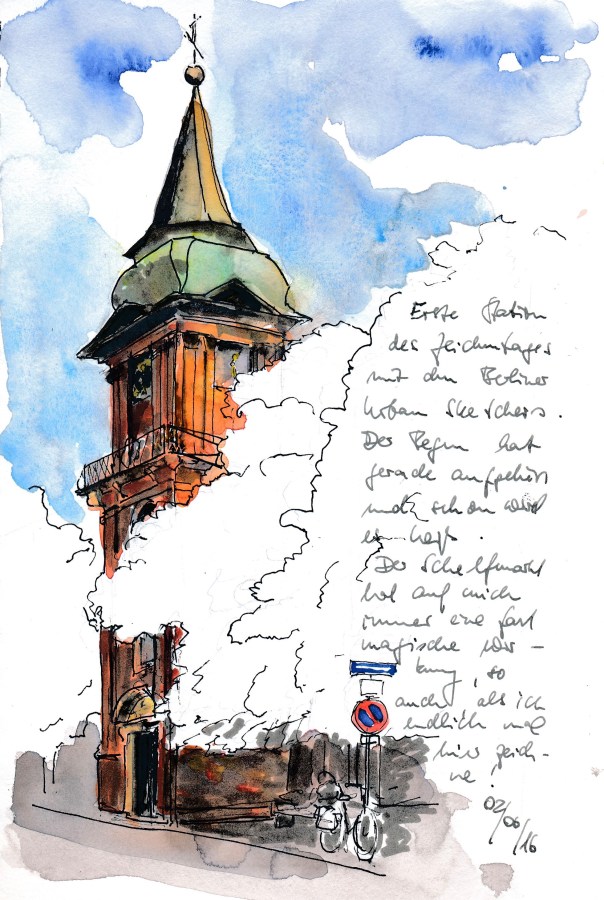 Erste Station
des Zeichentages
mit den Berliner
Urban Sketchers.
Der Regen hat
gerade aufgehört
und schon wird
es heiß.
Der Schelfmarkt
hat auf mich
immer eine fast
magische Wir-
kung, so
auch als ich
endlich mal
hier zeich-
ne!
02/06/16